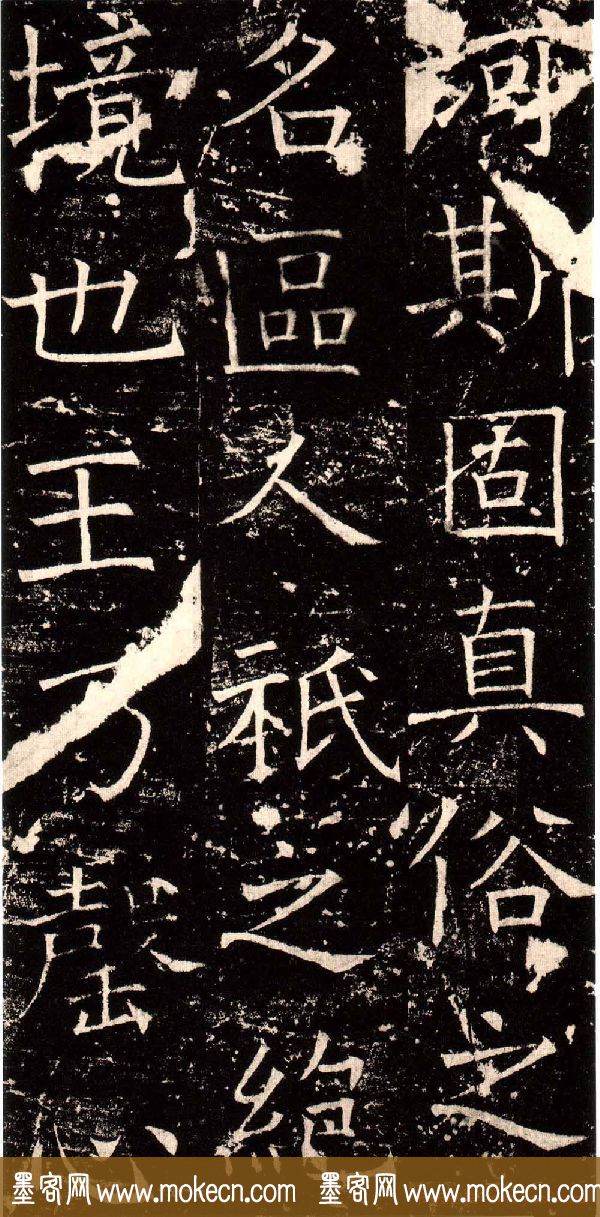 河斯固真俗之
名區人祇之絶
境也王乃罄心
墨客网 www.mokecn.com 墨客网 www.mokecn.com